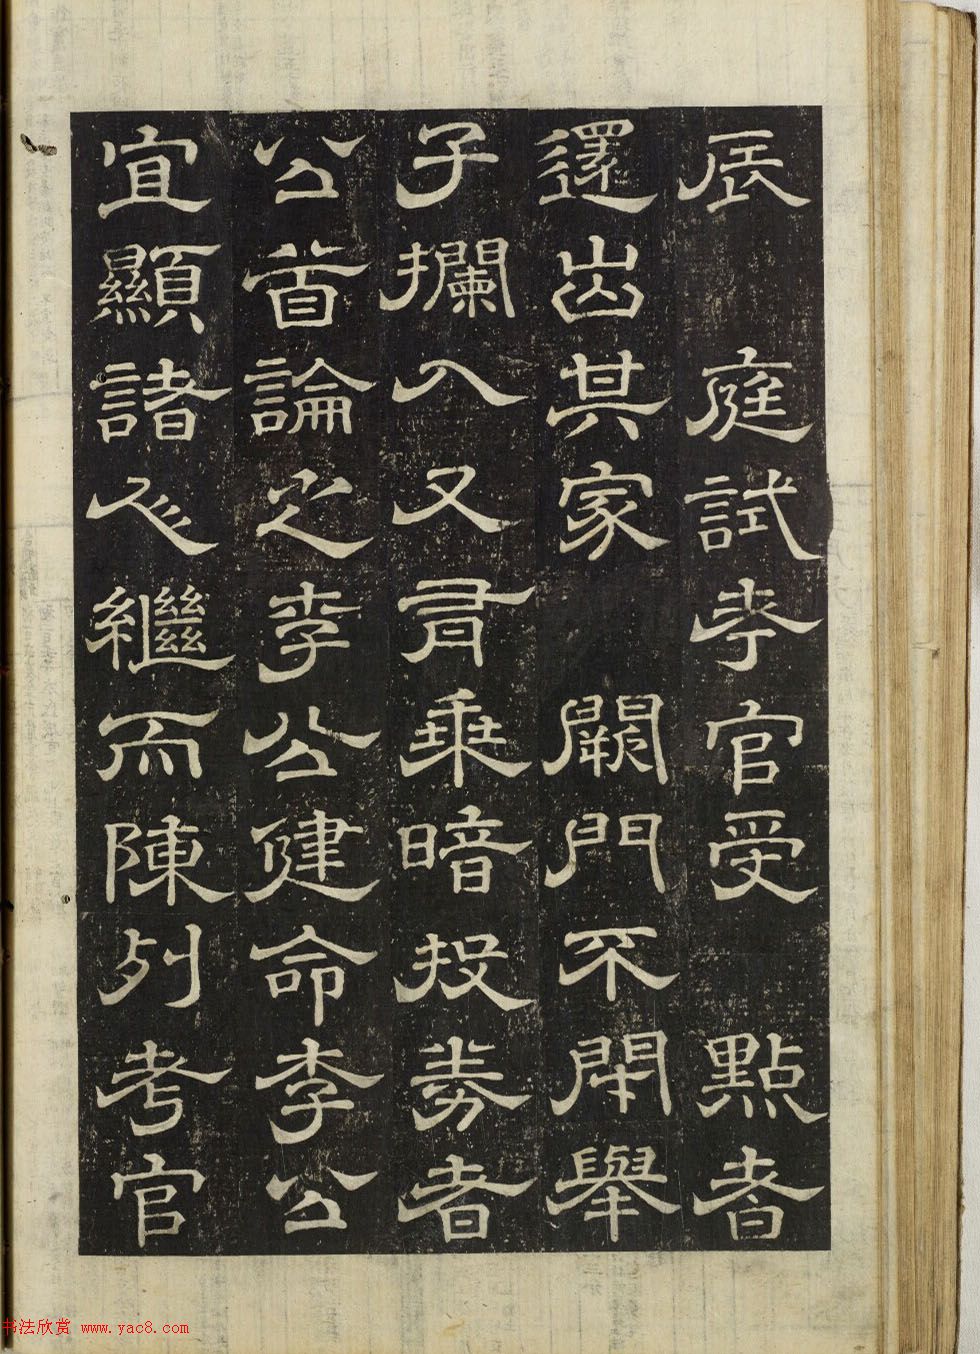 辰 庭試考官受 點者
還出其家 闕門不閉舉
子攔入又有乘暗投券者
公首論之李公健命李公
宜顯諸繼而陳列考官
书法欣赏 www.yac8.com